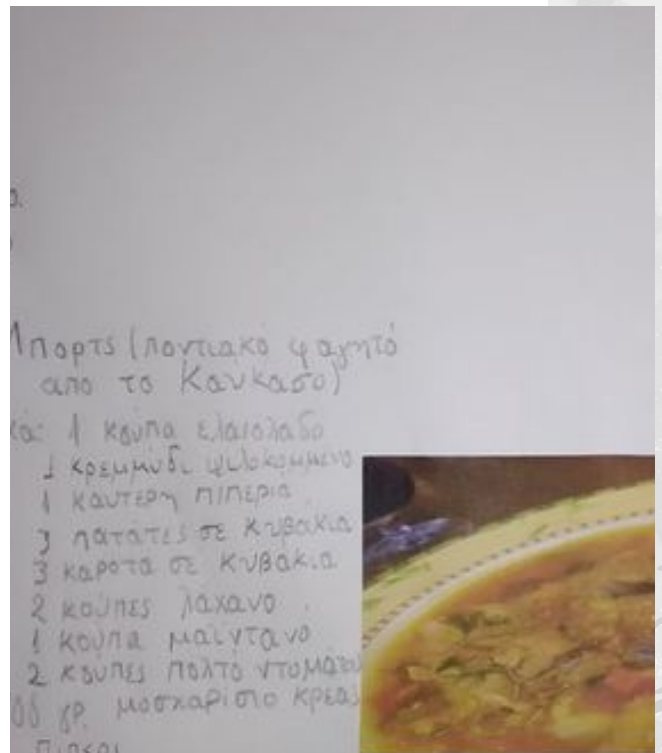 Μπορτς (ποντιακό φαγητό
απο το Καυκασο)
1 κουπα ελαιολαδο
1 κρεμμυδι ψιλοκομμενο
1 καυτερη πιπερια
3 πατατες σε κυβακια
3 καροτα σε κυβακια
2 κούπες λαχανο
1 κουπα μαϊντανο
2 κουπες πολτό ντομάτα
γρ. μοσχαρισιο κρεας
Πιπερι